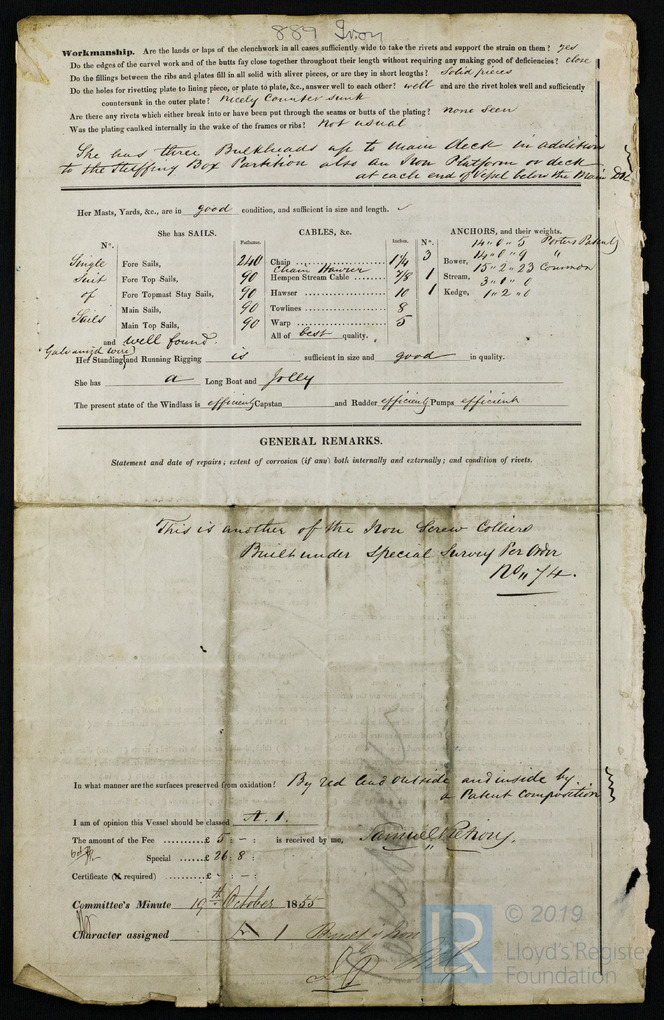 889 Iron
Workmanship. Are the lands or laps of the clenchwork in all cases sufficiently wide to take the rivets and support the strain on them? yes
Do the edges of the carvel work and of the butts fay close together throughout their length without requiring any making good of deficiencies? close
Do the fillings between the ribs and plates fill in all solid with sliver pieces, or are they in short lengths? Solid pieces
Do the holes for rivetting plate to lining piece, or plate to plate, &c., answer well to each other? well and are the rivet holes well and sufficiently
countersunk in the outer plate? Nicely Counter sunk
Are there any rivets which either break into or have been put through the seams or butts of the plating? none seen
Was the plating caulked internally in the wake of the frames or ribs? Not usual
She has three Bulkheads up to main deck in addition
to the Stuffing Box Partition also an Iron Platform or deck
at each end of Vessel below the Main Dk
Her Masts, Yards, &c., are in good condition, and sufficient in size and length.
She has SAILS. Fathoms. CABLES, &c. Inches. No. ANCHORS, and their weights.
No. 14 " 0 " 5 Porters Patent
Single Fore Sails, 240 Chain 1¼ 3 Bower, 14 " 0 " 9 "
Chain Hawser 15 " 2 " 23 Common
Suit Fore Top Sails, 90 Hempen Stream Cable 7/8 1 Stream, 3 " 1 " 0
of Fore Topmast Stay Sails, 90 Hawser 10 1 Kedge, 1 " 2 " 0
Sails Main Sails, 90 Towlines 8
Main Top Sails, 90 Warp 5
and well found. All of best quality.
Galvanizd wire
Her Standing and Running Rigging is sufficient in size and good in quality.
She has a Long Boat and Jolly
The present state of the Windlass is efficient Capstan and Rudder efficient Pumps efficient
GENERAL REMARKS.
Statement and date of repairs; extent of corrosion (if any) both internally and externally; and condition of rivets.
This is another of the Iron Screw Colliers
Built under Special Survey Per Order
No " 74.
In what manner are the surfaces preserved from oxidation? By red lead outside and inside by
a Patent Composition
I am of opinion this Vessel should be classed A. 1.
The amount of the Fee £ 5 : - : is received by me, Samuel
Special £ 26 : 8 :
Certificate (if required) £ - : - :
Committee's Minute 19th October 1855
Character assigned A 1 Built of Iron
LR
© 2019
Lloyd's Register
Foundation